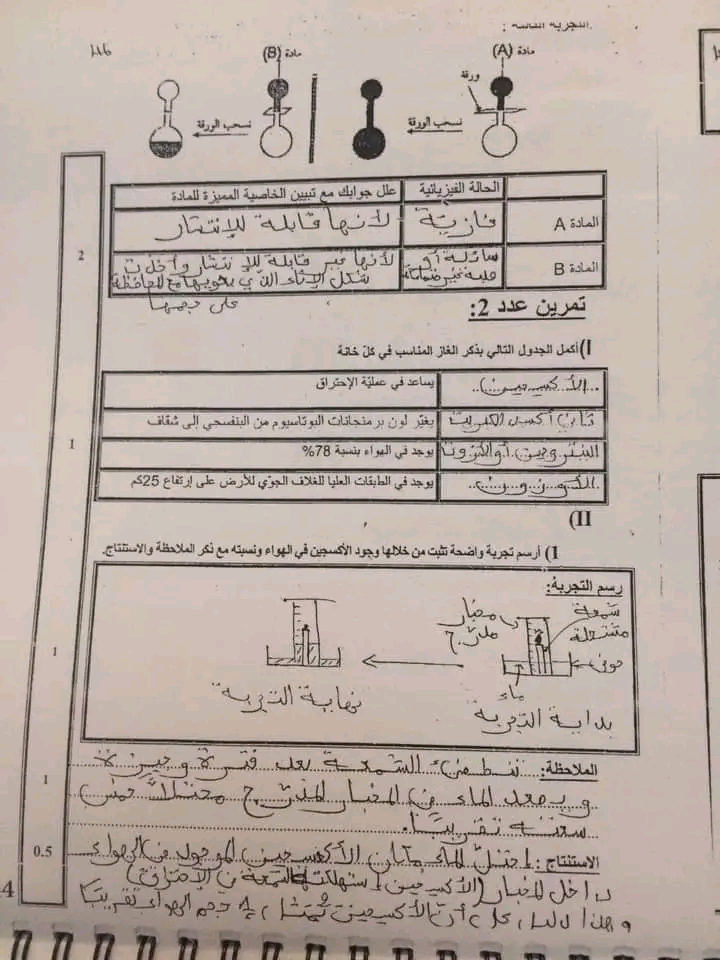 التجربة الثالثة :
مادة (A)
ورقة
نسحب الورقة
مادة (B)
نسحب الورقة
الحالة الفيزيائية
علل جوابك مع تبيين الخاصية المميزة للمادة
المادة A
غازية
لأنها قابلة للإنتشار
المادة B
سائلة أو
صلبة غير متماسكة
لأنها غير قابلة للإنتشار وأخذت
شكل الإناء الذي يحويها مع المحافظة
على حجمها
2
تمرين عدد 2:
I) أكمل الجدول التالي بذكر الغاز المناسب في كلّ خانة
الأكسيجين
يساعد في عمليّة الإحتراق
ثاني أكسيد الكبريت
يغيّر لون برمنجانات البوتاسيوم من البنفسجي إلى شفاف
النيتروجين أو الآزوت
يوجد في الهواء بنسبة 78%
الأوزون
يوجد في الطبقات العليا للغلاف الجوّي للأرض على إرتفاع 25كم
1
II)
1) أرسم تجربة واضحة تثبت من خلالها وجود الأكسجين في الهواء ونسبته مع ذكر الملاحظة والاستنتاج.
رسم التجربة:
شمعة
مشتعلة
مخبار
مدرّج
حوض
ماء
بداية التجربة
نهاية التجربة
1
الملاحظة: تنطفئ الشمعة بعد فترة وجيزة
و يصعد الماء في المخبار المدرّج محتلاّ خمس
سعته تقريبًا.
1
الاستنتاج : إحتلّ الماء مكان الأكسيجين الموجود في الهواء
داخل المخبار (الأكسيجين إستهلكته الشمعة في الإحتراق)
وهذا دليل على أنّ الأكسيجين يمثل حجم الهواء تقريبًا
0.5
4